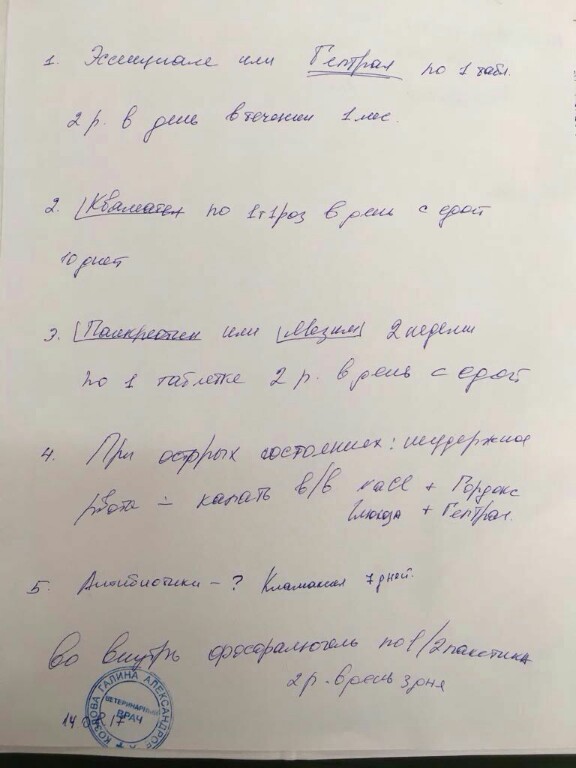 1. Эссенциале или Гептрал по 1 табл.
2 р. в день в течении 1 мес.
2. Квамател по 1т 1 раз в день с едой
10 дней
3. Панкреатин или Мезим 2 недели
по 1 таблетке 2 р. в день с едой
4. При острых состояниях: неудержное
рвота - капать в/в NaCl + Гордокс
Глюкоза + Гептрал.
5. Антибиотики - ? 7 дней.
Во внутрь фосфалюгель по 1/2 пакетика
2 р. в день 3 дня
КОЗЛОВА ГАЛИНА
ВЕТЕРИНАРНЫЙ
ВРАЧ